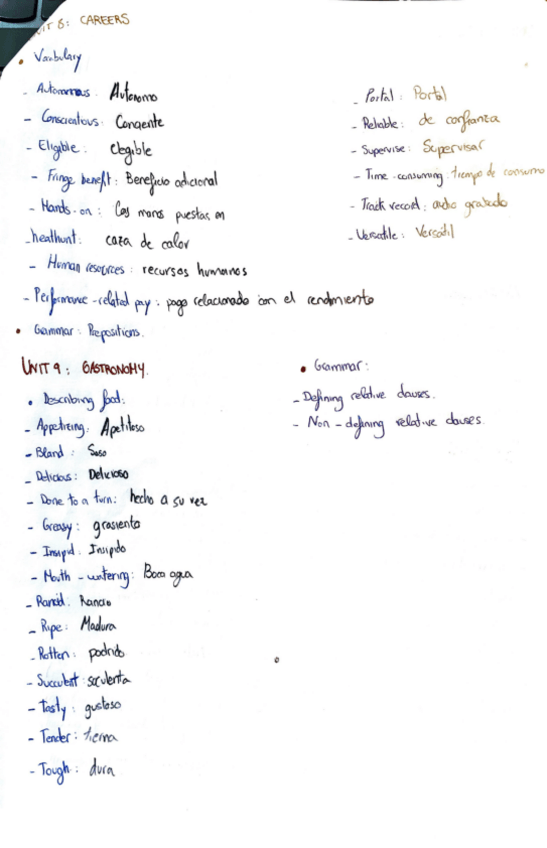 UNIT 8: CAREERS
• Vocabulary
- Autonomous: Autonomo
- Conscientous: Concente
- Eligible: Elegible
- Fringe benefit: Beneficio adicional
- Hands-on: Las manos puestas en
- heathunt: caza de calor
- Human resources: recursos humanos
- Performance-related pay: pago relacionado con el rendimiento
• Grammar: Prepositions.
- Portal: Portal
- Reliable: de confianza
- Supervise: Supervisar
- Time-consuming: tiempo de consumo
- Track record: audio grabado
- Versatile: Versátil
UNIT 9: GASTRONOMY.
• Describing food:
- Appetizing: Apetitoso
- Bland: Soso
- Delicious: Delicioso
- Done to a turn: hecho a su vez
- Greasy: grasiento
- Insipid: Insipido
- Mouth-watering: Boca agua
- Rancid: Rancio
- Ripe: Madura
- Rotten: podrido
- Succulent: suculenta
- Tasty: gustoso
- Tender: tierna
- Tough: dura
• Grammar:
- Defining relative clauses.
- Non-defining relative clauses.